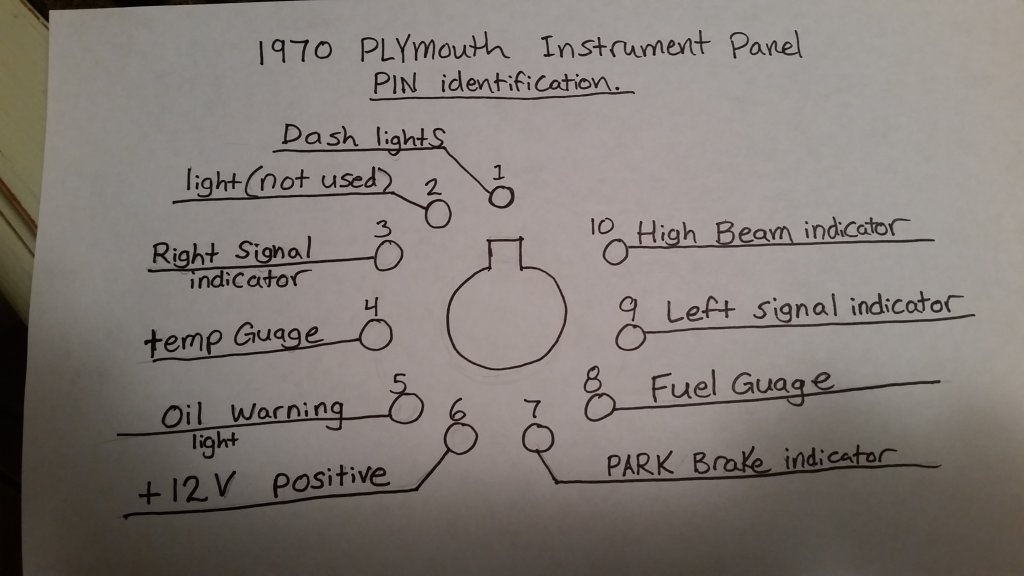 1970 PLYmouth Instrument Panel
PIN identification.
Dash lights
1
light (not used)
2
3
Right Signal
indicator
temp Guage
4
5
Oil Warning
light
6
+12V positive
7
PARK Brake indicator
8
Fuel Guage
9
Left signal indicator
10
High Beam indicator